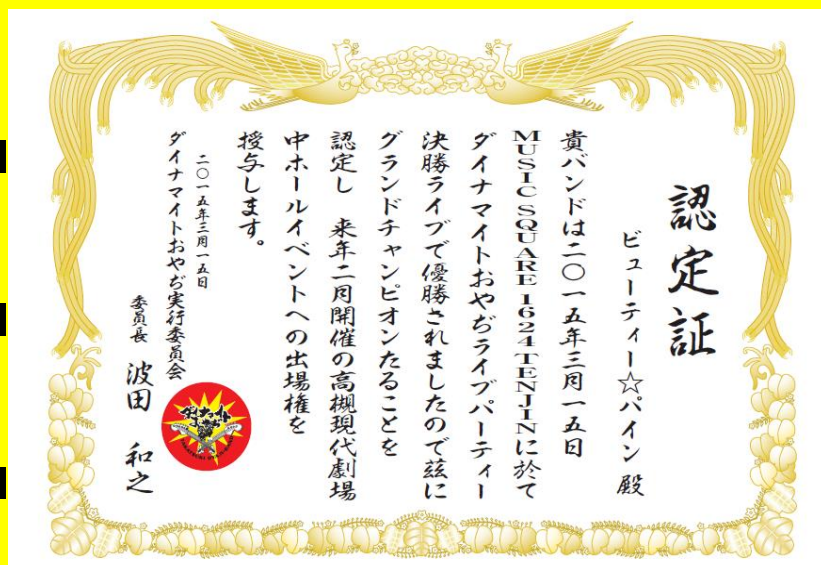 認定証
ビューティー☆パイン 殿
貴バンドは二〇一五年三月一五日
MUSIC SQUARE 1624 TENJINに於て
ダイナマイトおやぢライブパーティー
決勝ライブで優勝されましたので茲に
グランドチャンピオンたることを
認定し 来年二月開催の高槻現代劇場
中ホールイベントへの出場権を
授与します。
二〇一五年三月一五日
ダイナマイトおやぢ実行委員会
委員長 波田 和之